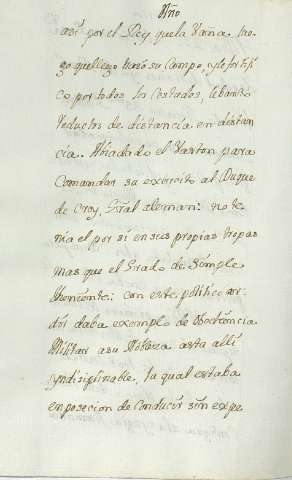 Año
así por el Rey que la Vana, lue
go que llegó trasó su Campo, y le fortifi
có por todos los Costados, lebantó
reductos de distancia en distan
cia. Añadido el Vaston para
Comandar su exercito al Duque
de Croy, Gñal aleman: no te
nía el por si en sus propias tropas
mas que el Grado de Símple
theniente: con este politico ar
dór daba exemplo de Doctancia
Militar a su Nobleza asta allí
yndisiplinable, la qual estaba
en posecion de Conducír sin expe